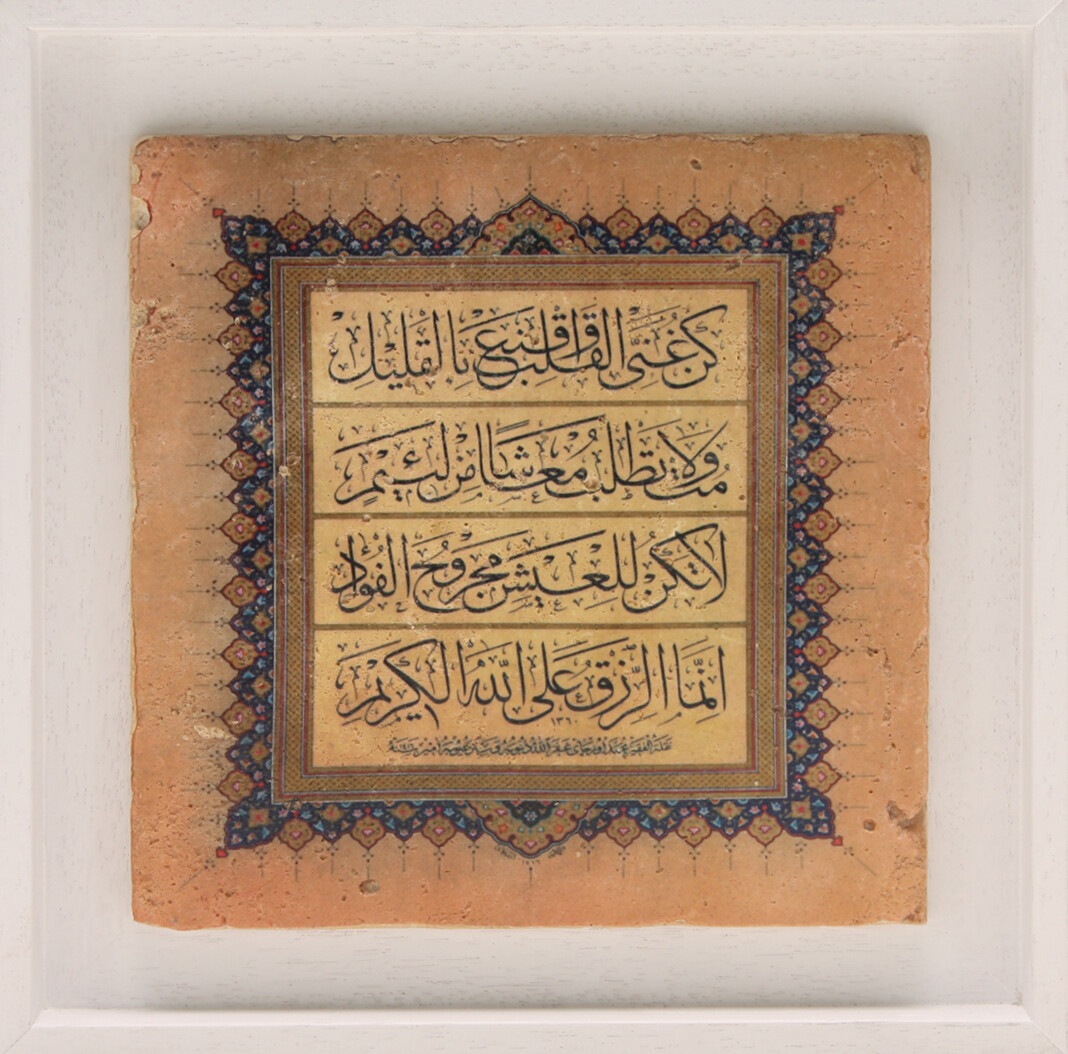 كُنْ غَنِيَّ القَلْبِ وَاقْنَعْ بِالْقَلِيلِ
مُتْ وَلَا تَطْلُبْ مَعَاشًا مِنْ لَئِيمٍ
لَا تَكُنْ لِلْعَيْشِ مَجْرُوحَ الفُؤَادِ
اِنَّمَا الرِّزْقُ عَلَى اللهِ الْكَرِيمِ
١٣٦٠